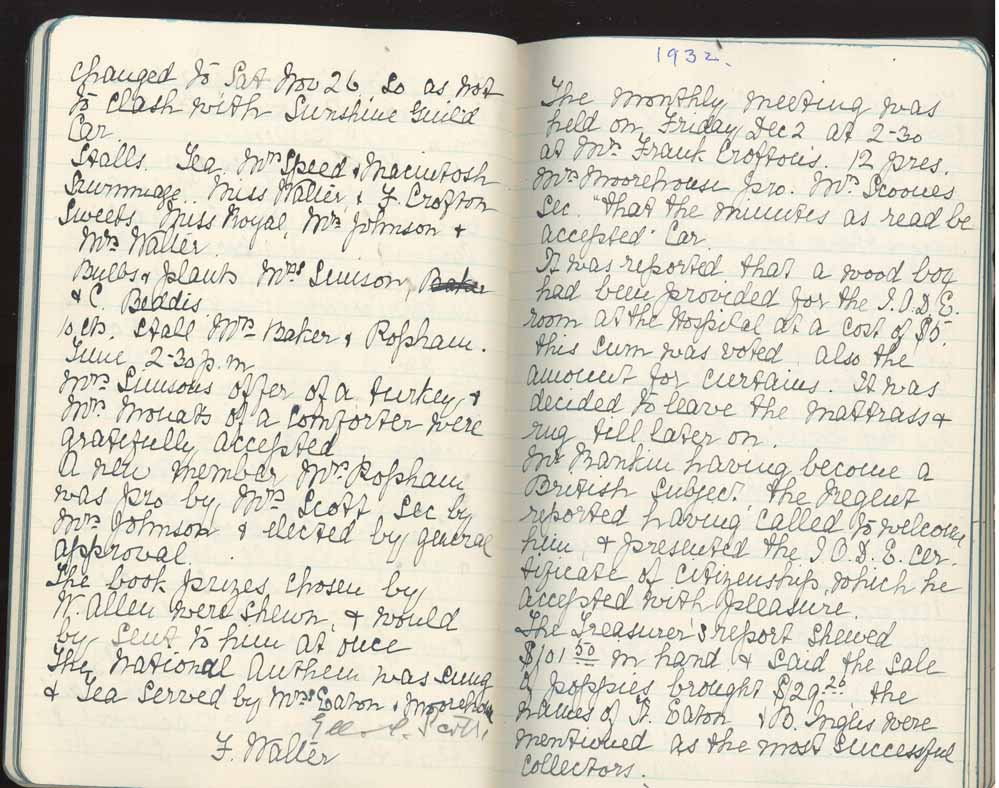 changed to Sat Nov 26 so as not
to clash with Sunshine Guild
Car
Stalls. Tea, Mrs Speed & Macintosh
Rummage. Miss Walter, & F. Crofton
Sweets, Miss Royal, Mrs Johnson &
Mrs Waller.
Bulbs & plants Mrs Simson,
& C. Beddis
10 cts. Stall Mrs Baker & Popham.
Time, 2-30 p.m
Mrs Simsons offer of a turkey, &
Mrs Mouats of a comforter were
gratefully accepted
A new member Mrs Popham
was pro by, Mrs Scott, Sec by
Mrs Johnson & elected by general
approval.
The book prizes chosen by
W. Allen were shewn, & would
by sent to him at once
The National Anthem was sung
& Tea served by Mrs Eaton & Moorehouse
Scott,
F. Walter
1932.
The monthly meeting was
held on Friday Dec 2 at 2-30
at Mrs Frank Croftons. 12 pres.
Mrs Moorehouse pro. Mrs Scoones
Sec. "that the minutes as read be
accepted" Car.
It was reported that a wood box
had been provided for the I.O.D.E.
room at the Hospital at a cost of $5.
this sum was voted, also the
amount for curtains. It was
decided to leave the mattrass &
rug till later on.
Mr Rankin having become a
British Subject, the Regent
reported having called to welcome
him, & presented the I.O.D.E. Cer-
tificate of Citizenship, which he
accepted with pleasure
The Treasurer's report shewed
$101 50 in hand & said the sale
of poppies brought $29.26 the
names of F. Eaton & B. Inglis were
mentioned as the most successful
collectors.